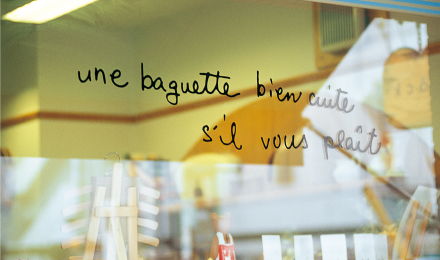 une baguette bien cuite
s'il vous plaît